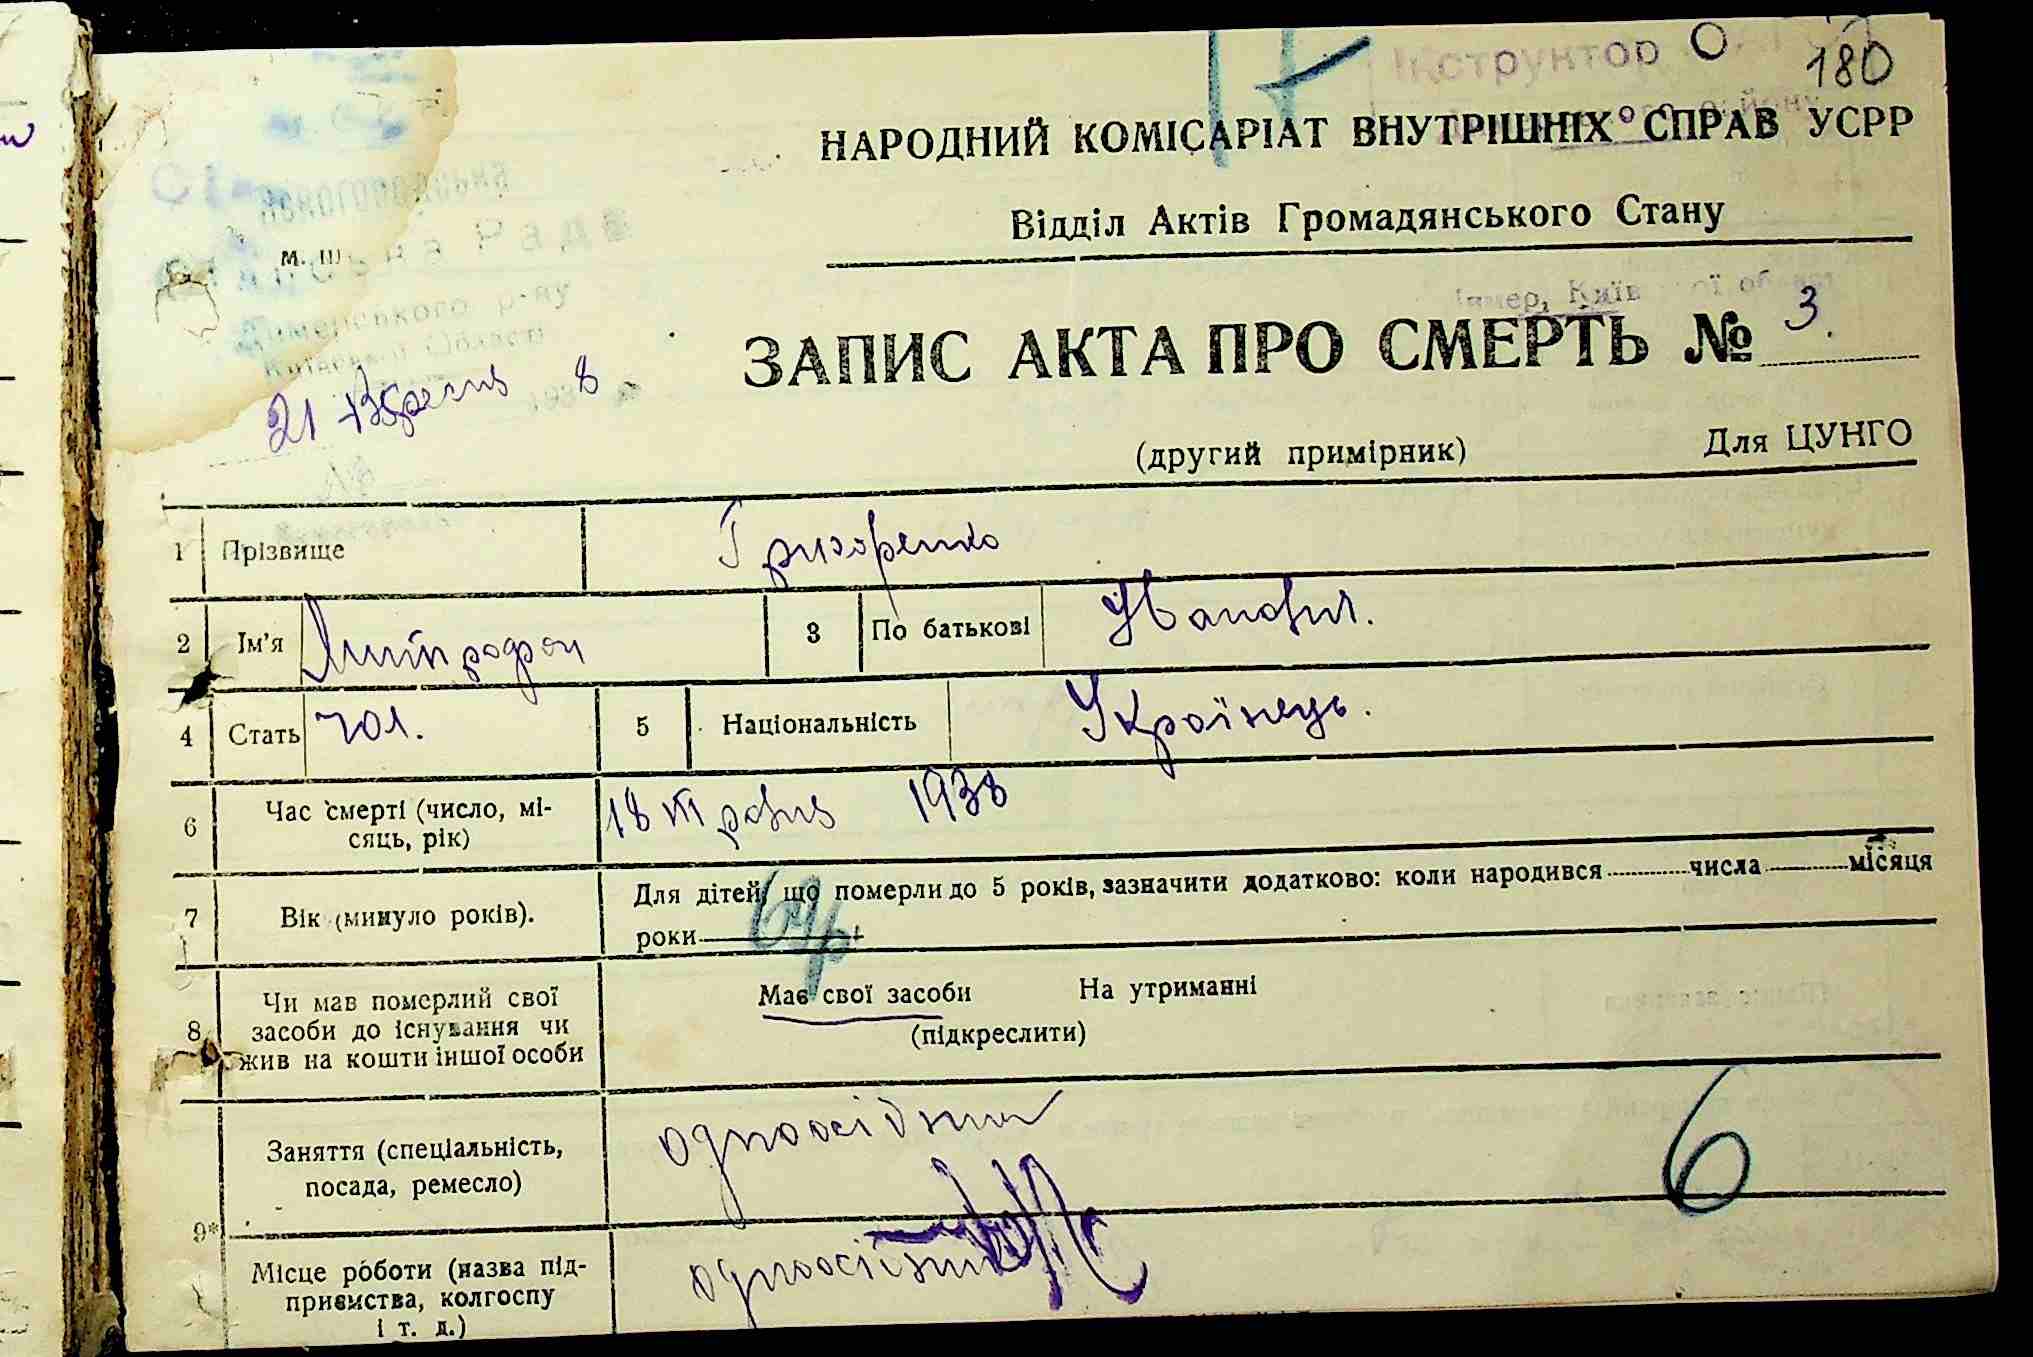 Інструктор
180
НАРОДНИЙ КОМІСАРІАТ ВНУТРІШНІХ СПРАВ УСРР
Відділ Актів Громадянського Стану
м. ш
Рада
Димерського р-ну
Київської Області
21 Вересня 8
193
ЗАПИС АКТА ПРО СМЕРТЬ № 3.
(другий примірник) Для ЦУНГО
1 Прізвище Григоренко
2 Ім'я Митрофан 3 По батькові Іванович.
4 Стать чол. 5 Національність Українець.
6 Час смерті (число, мі-
сяць, рік) 18 травня 1938
7 Вік (минуло років). Для дітей, що померли до 5 років, зазначити додатково: коли народився числа місяця
роки 64 р
8 Чи мав померлий свої
засоби до існування чи
жив на кошти іншої особи
Має свої засоби На утриманні
(підкреслити)
Заняття (спеціальність,
посада, ремесло) одноосібник
9*
6
Місце роботи (назва під-
приємства, колгоспу
і т. д.) одноосібник